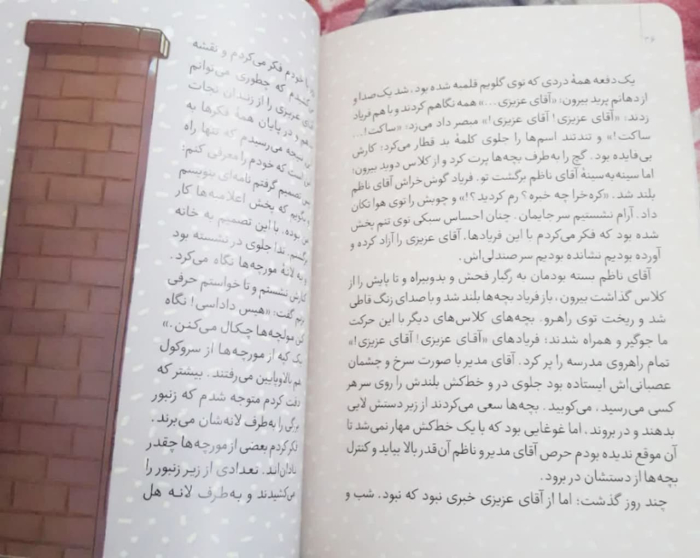 ۳۶
یک دفعه همهٔ دردی که توی گلویم قلمبه شده بود. شد یک صدا و
از دهانم پرید بیرون: «آقای عزیزی...» همه نگاهم کردند و با هم فریاد
زدند: «آقای عزیزی! آقای عزیزی!» مبصر داد می‌زد: «ساکت!...
ساکت!» و تندتند اسم‌ها را جلوی کلمهٔ بد قطار می‌کرد؛ کارش
بی‌فایده بود. گچ را به‌طرف بچه‌ها پرت کرد و از کلاس دوید بیرون؛
اما سینه‌به‌سینهٔ آقای ناظم برگشت تو. فریاد گوش‌خراش آقای ناظم
بلند شد. «کره‌خرا چه خبره؟ رم کردید؟!» و چوبش را توی هوا تکان
داد. آرام نشستیم سر جایمان. چنان احساس سبکی توی تنم پخش
شده بود که فکر می‌کردم با این فریادها، آقای عزیزی را آزاد کرده و
آورده بودیم نشانده بودیم سر صندلی‌اش.
آقای ناظم بسته بودمان به رگبار فحش و بدوبیراه و تا پایش را از
کلاس گذاشت بیرون، باز فریاد بچه‌ها بلند شد و با صدای زنگ قاطی
شد و ریخت توی راهرو. بچه‌های کلاس‌های دیگر با این حرکت
ما جوگیر و همراه شدند؛ فریادهای «آقای عزیزی! آقای عزیزی!»
تمام راهروی مدرسه را پر کرد. آقای مدیر با صورت سرخ و چشمان
عصبانی‌اش ایستاده بود جلوی در و خط‌کش بلندش را روی سر هر
کسی می‌رسید، می‌کوبید. بچه‌ها سعی می‌کردند از زیر دستش لایی
بدهند و در بروند. اما غوغایی بود که با یک خط‌کش مهار نمی‌شد تا
آن موقع ندیده بودم حرص آقای مدیر و ناظم آن‌قدر بالا بیاید و کنترل
بچه‌ها از دستشان در برود.
چند روز گذشت؛ اما از آقای عزیزی خبری نبود که نبود. شب و
با خودم فکر می‌کردم و نقشه
که چطوری می‌توانم
عزیزی را از زندان نجات
و در پایان همهٔ فکرها به
نتیجه می‌رسیدم که تنها راه
است که خودم را معرفی کنم؛
تصمیم گرفتم نامه‌ای بنویسم
بگویم که پخش اعلامیه‌ها کار
بوده. با این تصمیم به خانه
ندا جلوی در نشسته بود
به لانهٔ مورچه‌ها نگاه می‌کرد.
کنارش نشستم و تا خواستم حرفی
گفت: «هیس داداسی! نگاه
مولچه‌ها چیکال می‌کنن.»
یک که از مورچه‌ها از سروکول
هم بالا و پایین می‌رفتند. بیشتر که
دقت کردم متوجه شدم که زنبور
بزرگی را به‌طرف لانه‌شان می‌برند.
فکر کردم بعضی از مورچه‌ها چقدر
نادان‌اند. تعدادی از زیر زنبور را
می‌کشیدند و به‌طرف لانه هل